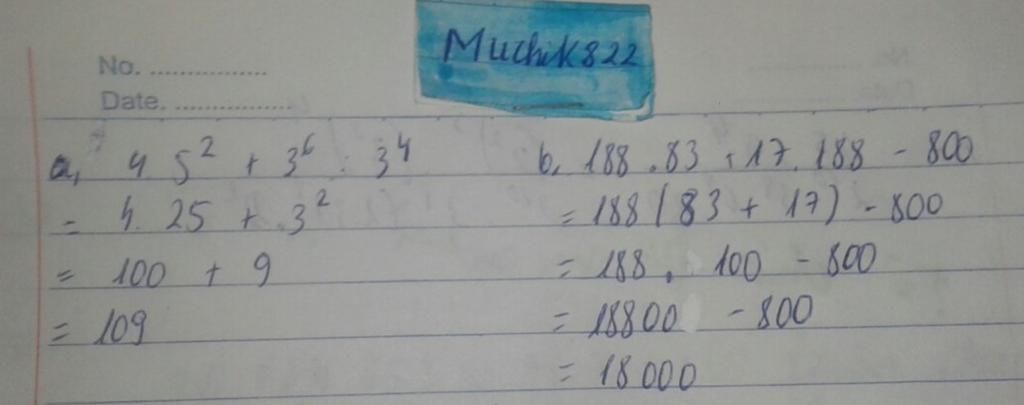 Muchik822
No. ................
Date. ................
a, 4 5² + 3⁶ : 3⁴
= 4. 25 + 3²
= 100 + 9
= 109
b, 188 . 83 + 17. 188 - 800
= 188 ( 83 + 17) - 800
= 188 . 100 - 800
= 18800 - 800
= 18 000